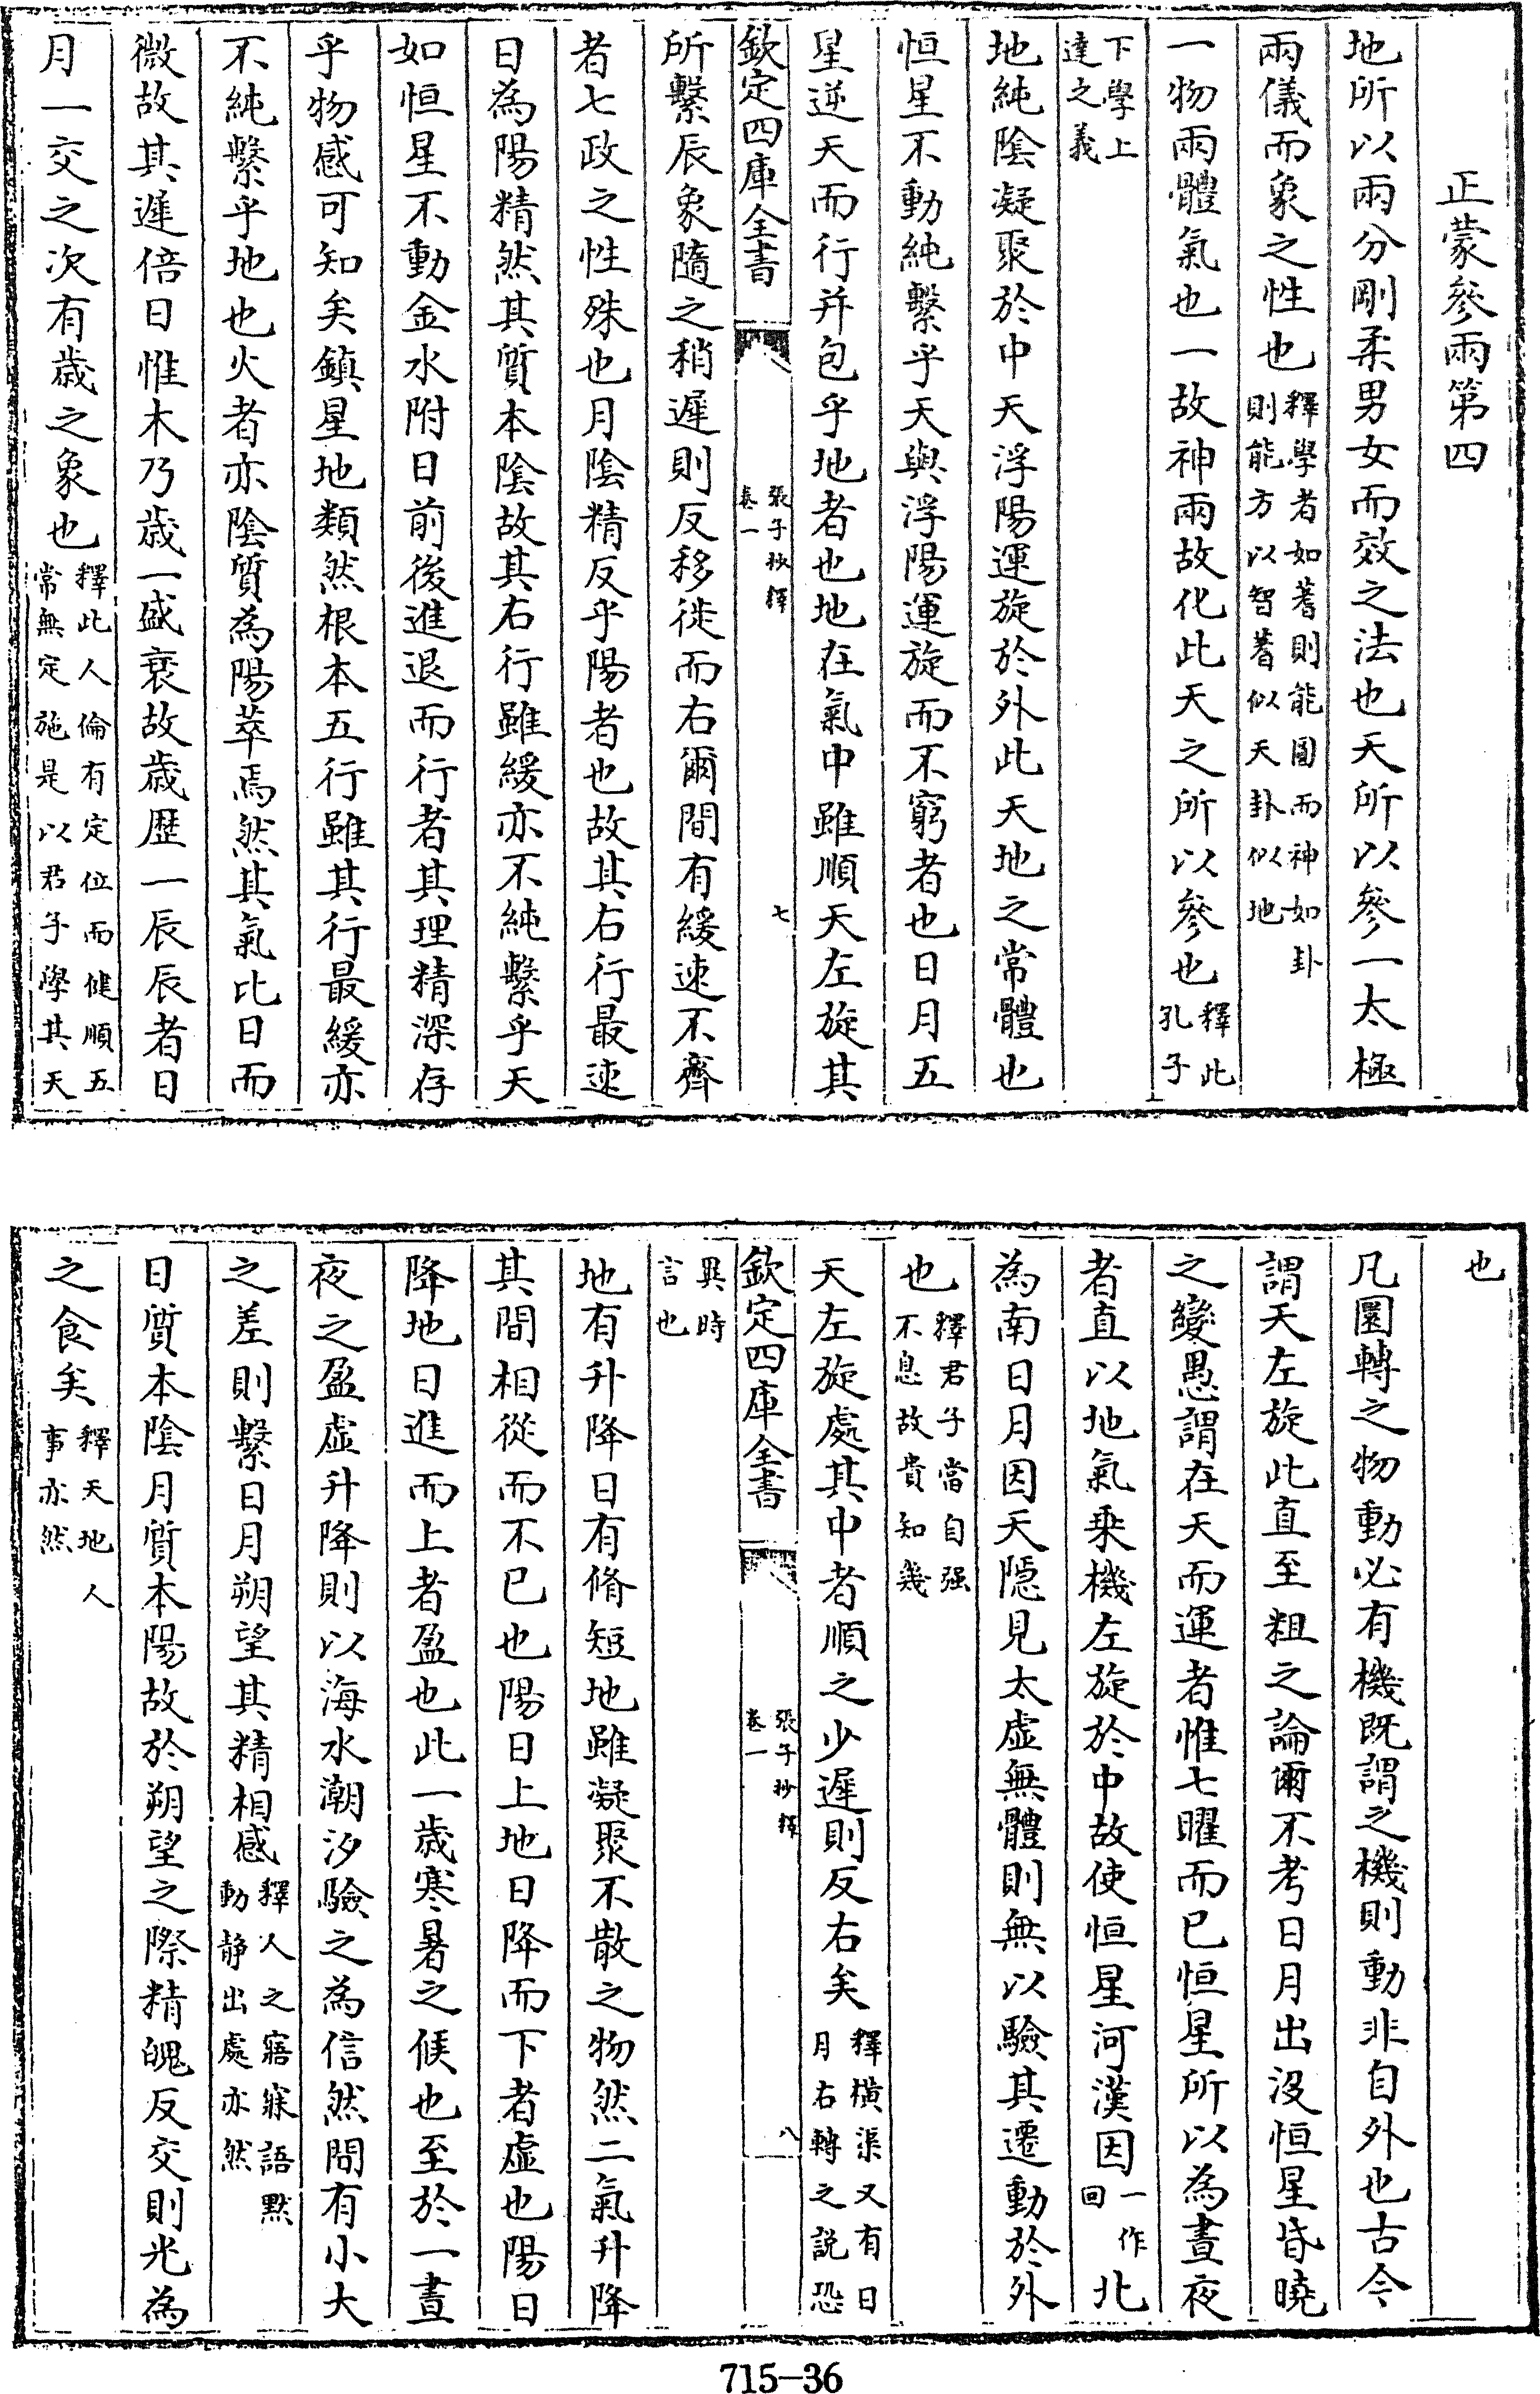 正蒙參兩第四
地所以兩分剛柔男女而效之法也天所以參一太極
兩儀而象之性也釋學者如蓍則能圓而神如卦
則能方以智蓍似天卦似地
一物兩體氣也一故神兩故化此天之所以參也釋此
孔子
下學上
達之義
地純陰凝聚於中天浮陽運旋於外此天地之常體也
恒星不動純繫乎天與浮陽運旋而不窮者也日月五
星逆天而行并包乎地者也地在氣中雖順天左旋其
欽定四庫全書
張子抄釋
卷一
七
所繫辰象隨之稍遲則反移徙而右爾間有緩速不齊
者七政之性殊也月陰精反乎陽者也故其右行最速
日為陽精然其質本陰故其右行雖緩亦不純繫乎天
如恒星不動金水附日前後進退而行者其理精深存
乎物感可知矣鎮星地類然根本五行雖其行最緩亦
不純繫乎地也火者亦陰質為陽萃焉然其氣比日而
微故其遲倍日惟木乃歲一盛衰故歲歴一辰辰者日
月一交之次有歲之象也釋此人倫有定位而健順五
常無定施是以君子學其天
也
凡圜轉之物動必有機既謂之機則動非自外也古今
謂天左旋此直至粗之論爾不考日月出沒恒星昏曉
之變愚謂在天而運者惟七曜而已恒星所以為晝夜
者直以地氣乗機左旋於中故使恒星河漢因一作
回北
為南日月因天隱見太虛無體則無以驗其遷動於外
也釋君子當自强
不息故貴知幾
天左旋處其中者順之少遲則反右矣釋橫渠又有日
月右轉之説恐
欽定四庫全書
張子抄釋
卷一
八
異時
言也
地有升降日有脩短地雖凝聚不散之物然二氣升降
其間相從而不已也陽日上地日降而下者虛也陽日
降地日進而上者盈也此一歲寒暑之候也至於一晝
夜之盈虛升降則以海水潮汐驗之為信然間有小大
之差則繫日月朔望其精相感釋人之寤寐語默
動静出處亦然
日質本陰月質本陽故於朔望之際精魄反交則光為
之食矣釋天地人
事亦然
715-36